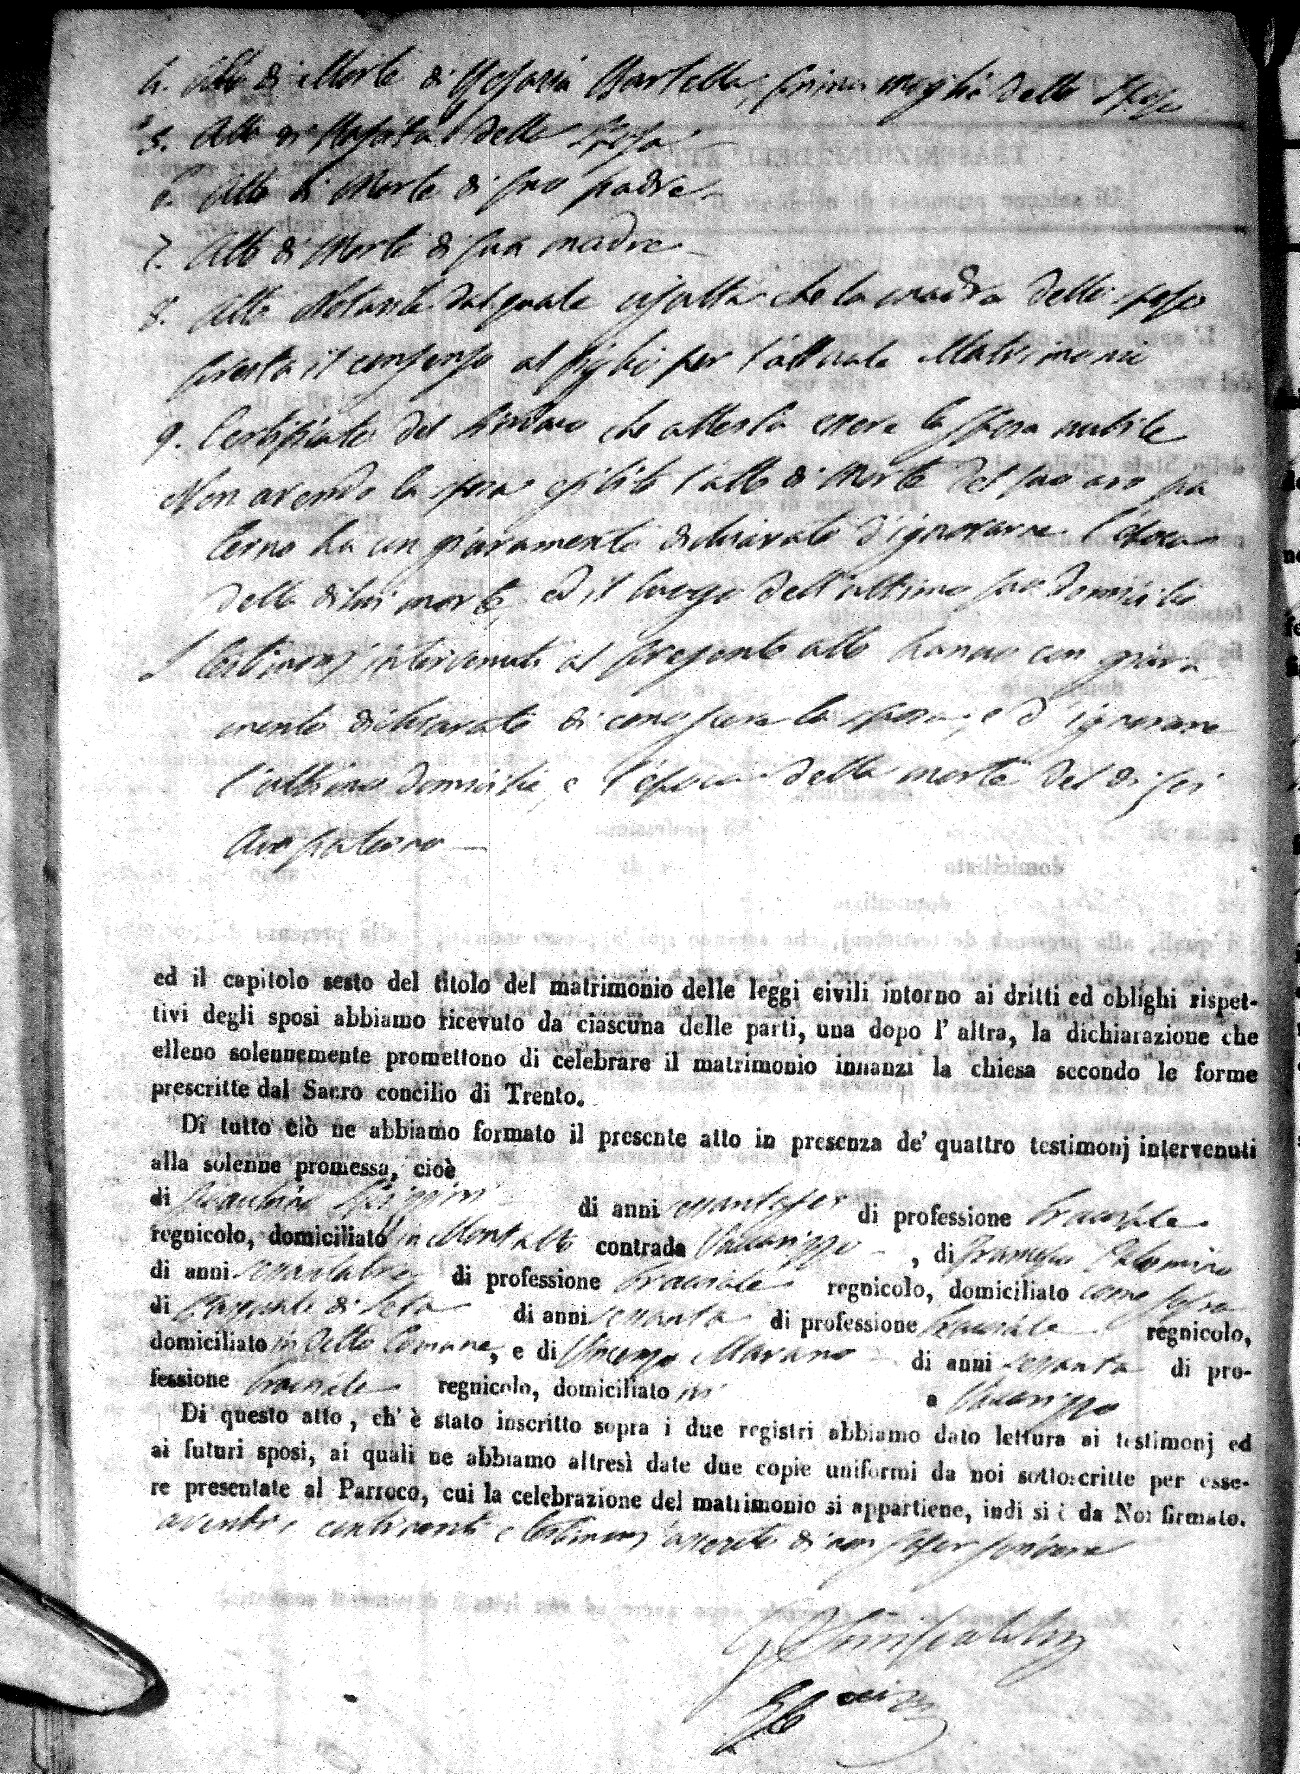 4. Atto di Morte di Bartella, prima moglie dello Sposo
5. Atto di Nascita della Sposa
6. Atto di Morte di suo padre
7. Atto di Morte di sua madre
8. Atto Notarile dal quale risulta che la madre dello sposo
presta il consenso al figlio per l'attuale Matrimonio
9. Certificato del Sindaco che attesta essere la sposa nubile
Non avendo la sposa esibito l'atto di Morte del suo avo pa
terno ha con giuramento dichiarato d'ignorarne l'epoca
della di lui morte, ed il luogo dell'ultimo suo domicilio
I testimonj intervenuti al presente atto hanno con giura
mento dichiarato di conoscere la sposa, e d'ignorare
l'ultimo domicilio, e l'epoca della morte del di lei
Avo paterno
ed il capitolo sesto del titolo del matrimonio delle leggi civili intorno ai dritti ed oblighi rispet-
tivi degli sposi abbiamo ricevuto da ciascuna delle parti, una dopo l' altra, la dichiarazione che
elleno solennemente promettono di celebrare il matrimonio innanzi la chiesa secondo le forme
prescritte dal Sacro concilio di Trento.
Di tutto ciò ne abbiamo formato il presente atto in presenza de' quattro testimonj intervenuti
alla solenne promessa, cioè
di di anni di professione bracciale
regnicolo, domiciliato in Montalto contrada Vaccarizzo, di Francesco
di anni di professione bracciale regnicolo, domiciliato come sopra
di Pasquale di Seta di anni sessanta di professione bracciale regnicolo,
domiciliato in detto Comune, e di Vincenzo Marano di anni sessanta di pro-
fessione bracciale regnicolo, domiciliato in a Vaccarizzo
Di questo atto, ch' è stato inscritto sopra i due registri abbiamo dato lettura ai testimonj ed
ai futuri sposi, ai quali ne abbiamo altresì date due copie uniformi da noi sottoscritte per esse-
re presentate al Parroco, cui la celebrazione del matrimonio si appartiene, indi si è da Noi firmato.
avendo i contraenti e testimonj asserito di non saper scrivere